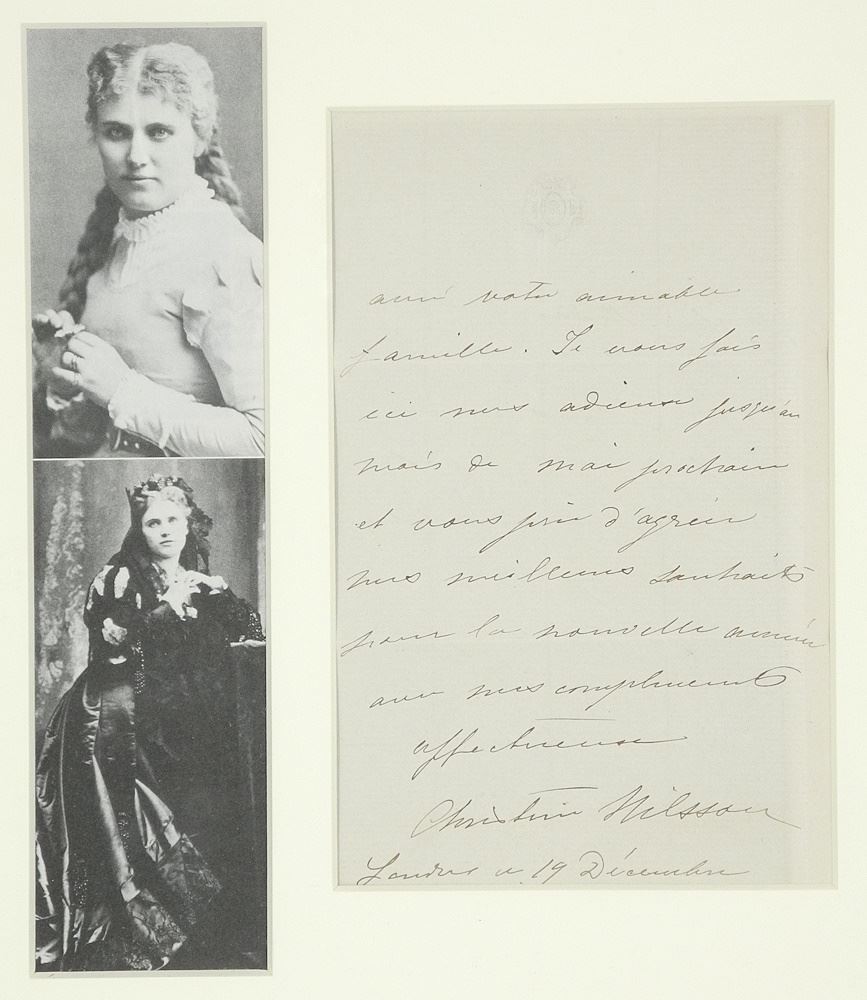 avec votre aimable
famille. Je vous fais
ici mes adieux jusqu'au
mois de mai prochain
et vous prie d'agréer
mes meilleurs souhaits
pour la nouvelle année
avec mes compliments
affectueux
Christine Nilsson
Londres ce 19 Décembre